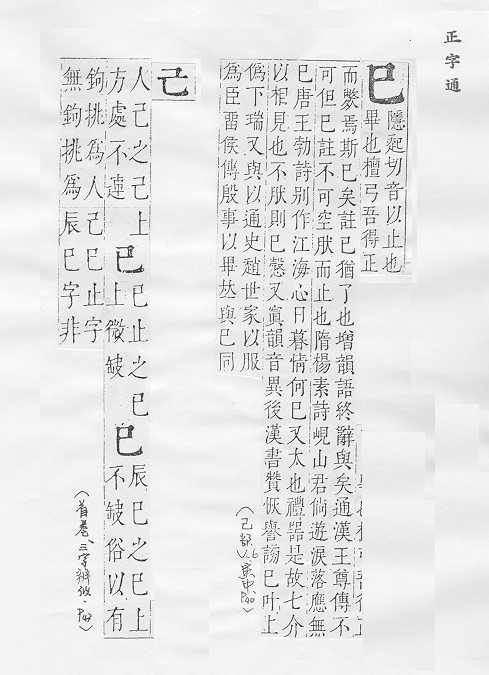 正字通
巳
隱起切音以止也
畢也檀弓吾得正
而斃焉斯巳矣註巳猶了也增韻語終辭與矣通漢王尊傳不
可但巳註不可空肰而止也隋楊素詩峴山君倘遊淚落應無
巳唐王勃詩别作江海心日暮情何巳又太也禮器是故七介
以相見也不肰則巳慤又寘韻音異後漢書贊恢譽謗巳叶上
僞下瑞又與以通史趙世家以服
爲臣雷侯傳殷事以畢𠀤與巳同
(己部 V.6 寅中 P40)
己
人己之己上
方處不連
已
巳止之巳
上微缺
巳
辰巳之巳上
不缺俗以有
鉤挑爲人己巳止字
無鉤挑爲辰巳字非
(首卷三字辨似 P47)